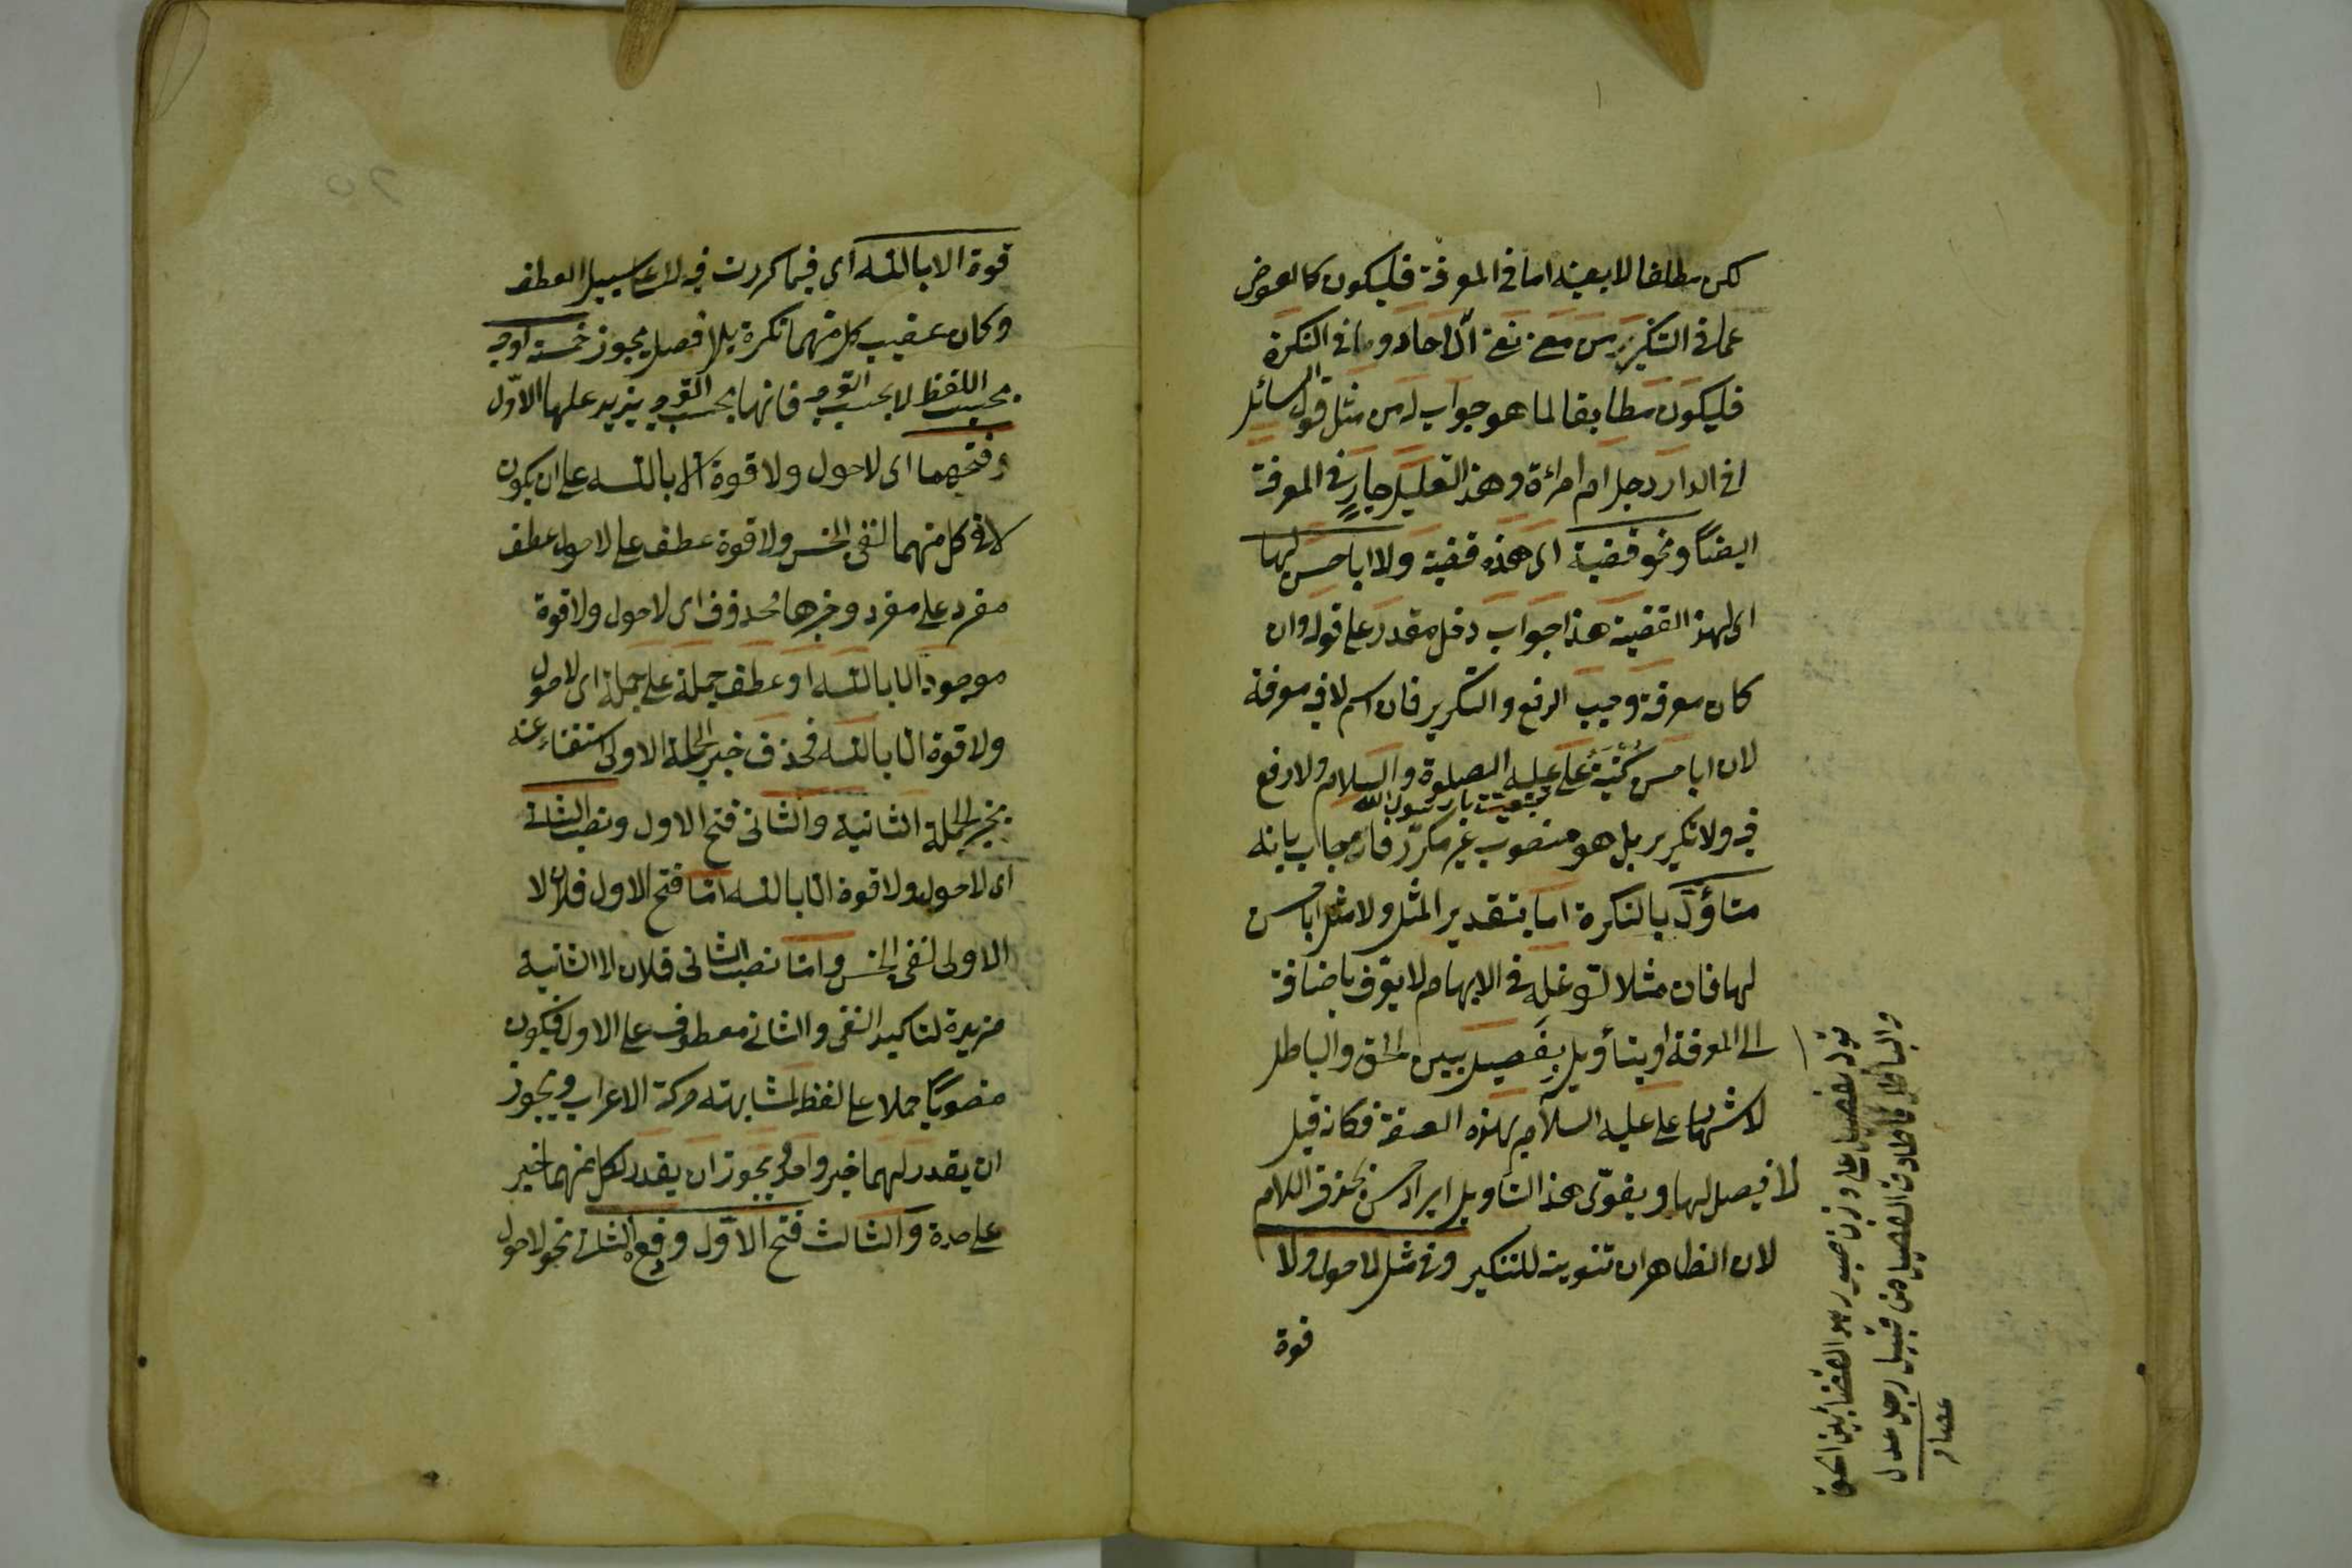 لكن مطلقا لا بعينه اما في المعرفة فليكون كالعوض
عما في التنكير من معنى نفي الآحاد واما في النكرة
فليكون مطابقا لما هو جواب له من مثل قول السائل
افي الدار رجل ام امرأة وهذا التعليل جارٍ في المعرفة
ايضاً ونحو قضية اى هذه قضية ولا ابا حسن لها
اى لهذه القضية هذا جواب دخل مقدر على قوله وان
كان معرفة وجب الرفع والتكرير فان اسم لا فيه معرفة
لان ابا حسن كُنْيَةُ على عليه الصلوة والسلام ولا رفع
فيه ولا تكرير بل هو منصوب غير مكرّر فاجاب بانه
متأوّل بالنكرة اما بتقدير المثل ولا مثل ابا حسن
لها فان مثلا لتوغله في الابهام لا يتعرّف باضافة
الى المعرفة او بتأويل بِفَيصيل بين الحق والباطل
لاشتهار على عليه السلام بهذه الصفة فكانه قيل
لا فيصل لها ويقوّى هذا التاويل ايراد حسن بحذف اللام
لان الظاهر ان تنوينه للتنكير وفي مثل لا حول ولا
قوة
قوله بفيصيل على وزن
والباطل
من قبيل رجل عدل
عصام
قوة الا بالله اى فيما كررت فيه لا على سبيل العطف
وكان عقيب كل منهما نكرة بلا فصل يجوز خمسة اوجه
بحسب اللفظ لا بحسب التوجيه فانها بحسب التوجيه يزيد عليها الاوّل
فتحهما اى لا حول ولا قوة الا بالله على ان يكون
لا في كل منهما لنفى الجنس ولا قوة عطف على لا حول عطف
مفرد على مفرد وخبرها محذوف اى لا حول ولا قوة
موجود الا بالله او عطف جملة على جملة اى لا حول
ولا قوة الا بالله فحذف خبر الجملة الاولى استغناء عنه
بخبر الجملة الثانية والثانى فتح الاول ونصب الثانى
اى لا حول ولا قوة الا بالله امّا فتح الاول فلان لا
الاولى لنفى الجنس وامّا نصب الثانى فلان لا الثانية
مزيدة لتاكيد النفى والثانى معطوف على الاول فيكون
منصوباً حملا على لفظه لمشابهته حركة الاعراب ويجوز
ان يقدر لهما خبر واحد ويجوز ان يقدر لكل منهما خبر
على حدة والثالث فتح الاوّل ورفع الثانى نحو لا حول